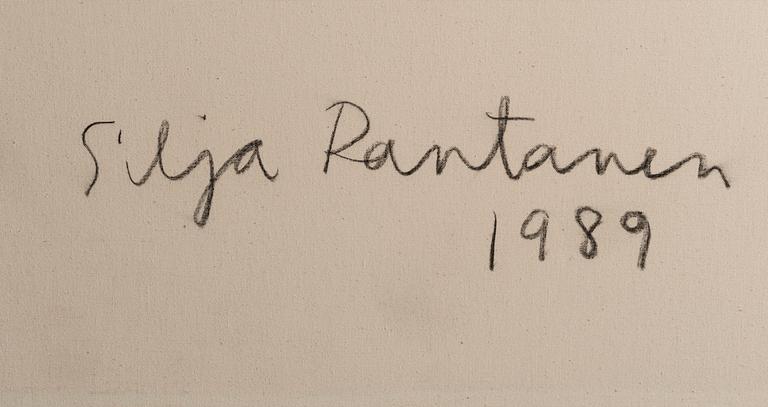 Silja Rantanen
1989